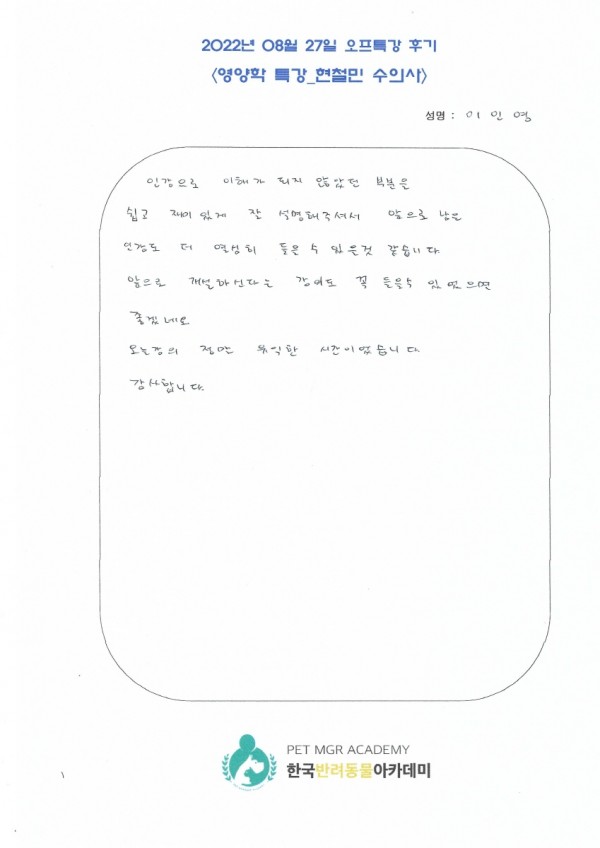 2022년 08월 27일 오프특강 후기
<영양학 특강_현철민 수의사>
성명 : 이인영
인강으로 이해가 되지 않았던 부분을
쉽고 재미있게 잘 설명해주셔서 앞으로 남은
인강도 더 열심히 들을 수 있을것 같습니다.
앞으로 개설하신다는 강의도 꼭 들을수 있었으면
좋겠네요
오늘강의 정말 유익한 시간이었습니다.
감사합니다.
PET MGR ACADEMY
한국반려동물아카데미